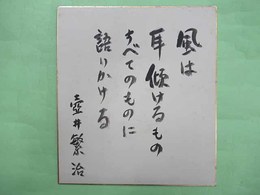 風は
耳傾けるもの
すべてのものに
語りかける
壺井繁治